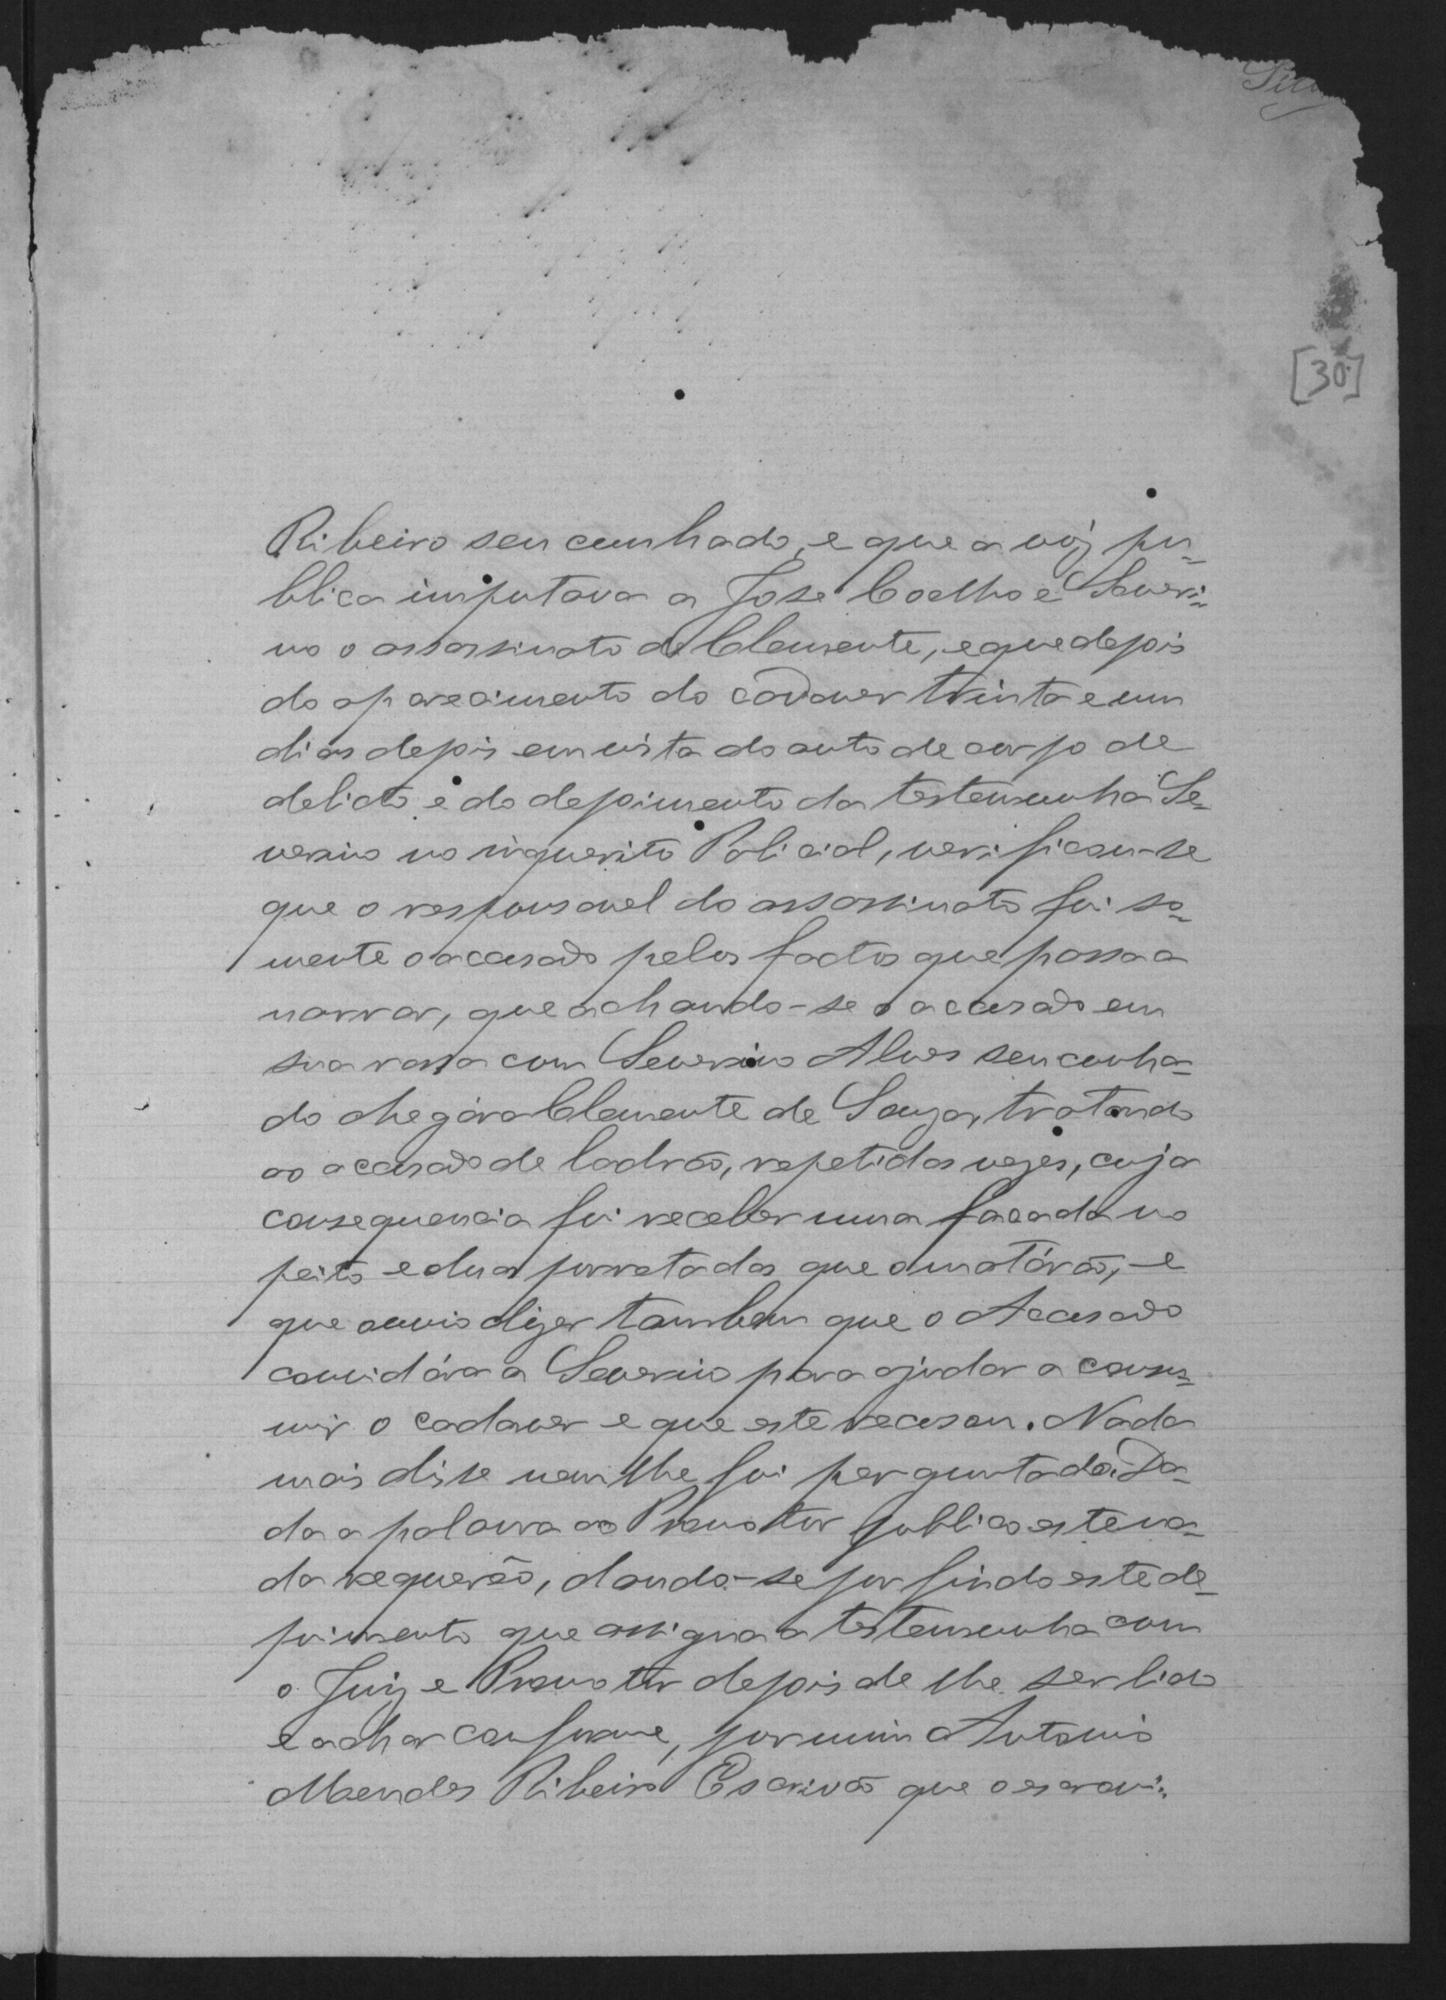 [30]
Ribeiro seu cunhado, e que a vóz pu-
blica imputava a José Coelho e Severi-
no o assassinato de Clemente, e que depois
do aparecimento do cadaver trinta e um
dias depois em vista do auto de corpo de
delicto e do depoimento da testemunha Se-
verino no inquerito Policial, verificou-se
que o responsavel do assassinato foi so-
mente o accusado pelos factos que passa a
narrar, que achando-se o accusado em
sua rossa com Severino Alves seu cunha-
do chegára Clemente de Souza, tratando
ao accusado de ladrão, repetidas vezes, cuja
consequencia foi receber uma facada no
peito e duas porretadas que o matárão, e
que ouvio dizer tambem que o Accusado
convidára a Severino para ajudar a consu-
mir o cadaver e que este recusou. Nada
mais disse nem lhe foi perguntado. Da-
da a palavra ao Promotor publico este na-
da requereo, dando-se por findo este de-
poimento que assigna a testemunha com
o Juiz e Promotor depois de lhe ser lido
e achar conforme, por mim Antonio
Mendes Ribeiro Escrivão que o escrevi.